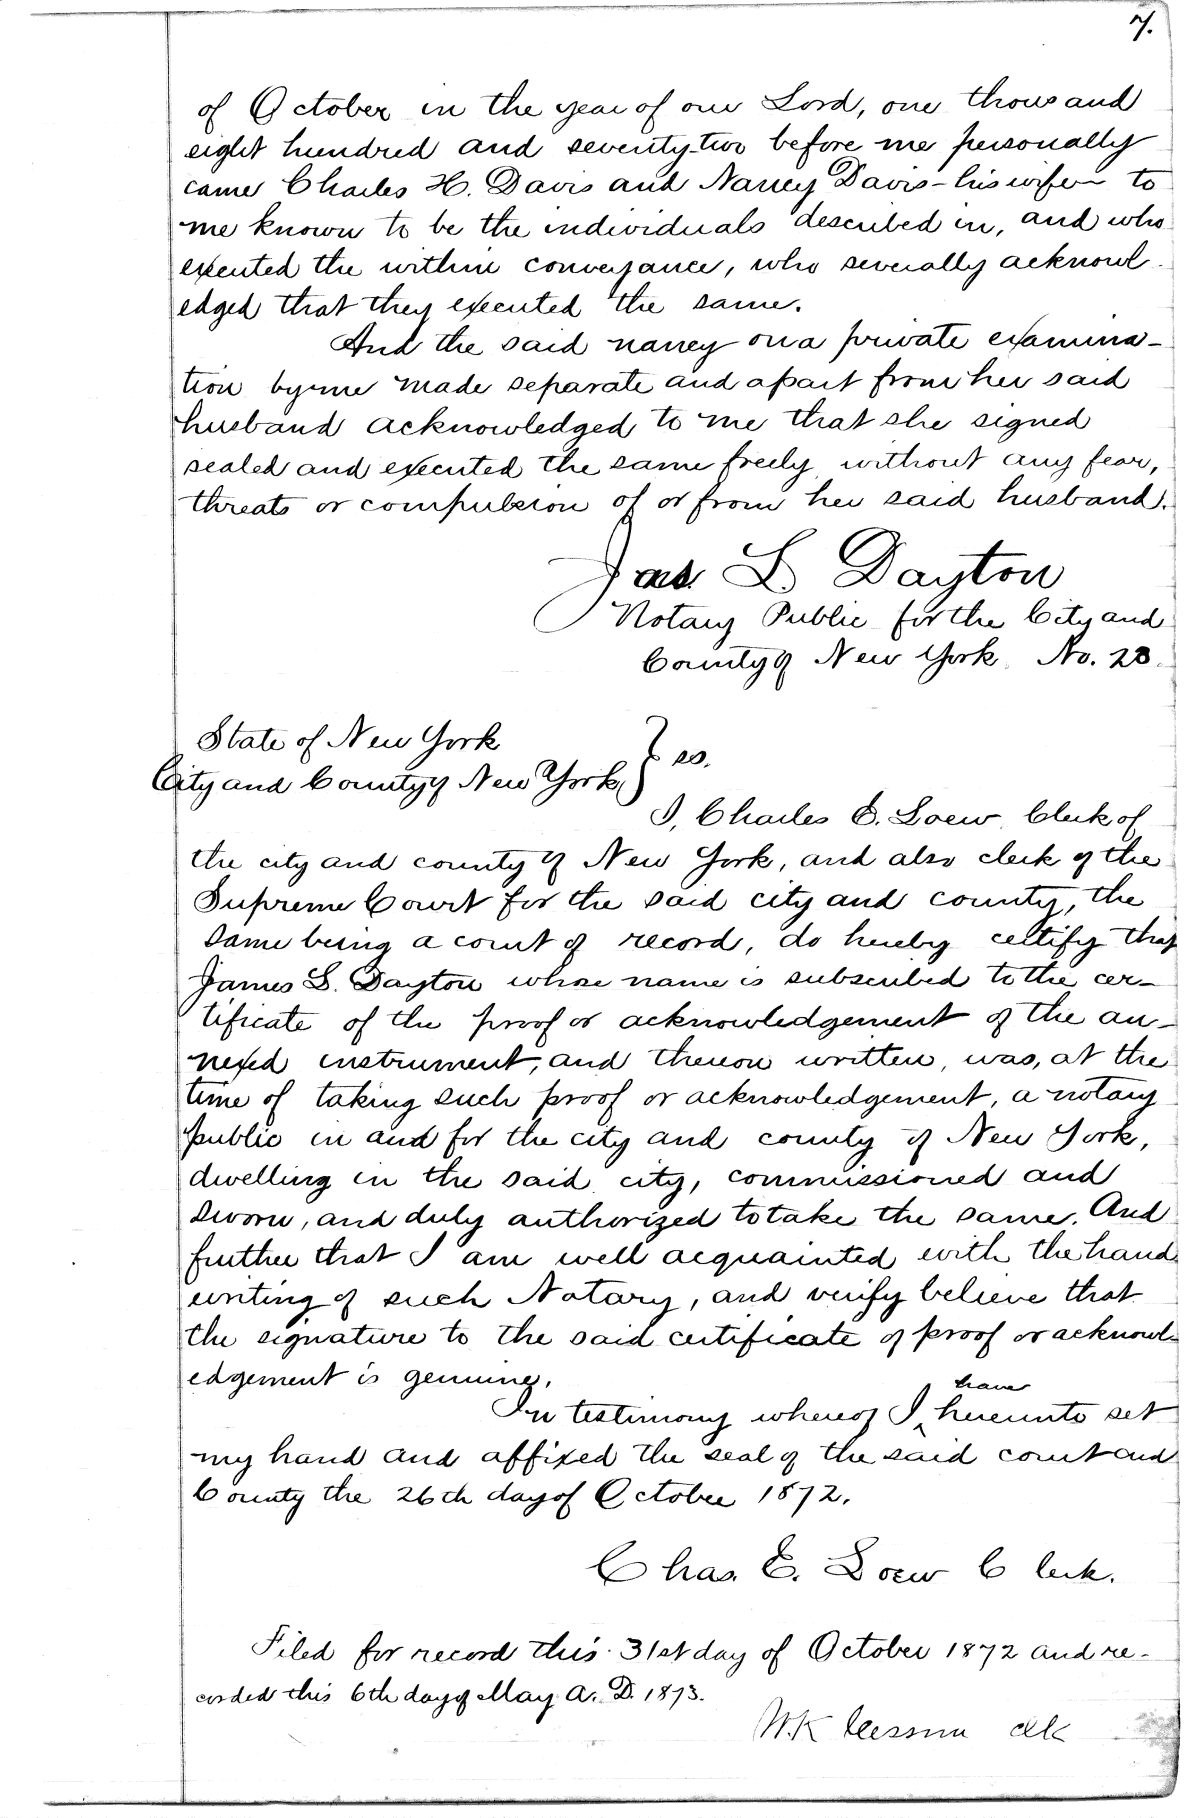 7.
of October in the year of our Lord, one thousand
eight hundred and seventy-two before me personally
came Charles H. Davis and Nancy Davis - his wife - to
me known to be the individuals described in, and who
executed the within conveyance, who severally acknowl-
edged that they executed the same.
And the said nancy on a private examina-
tion by me made separate and apart from her said
husband acknowledged to me that she signed
sealed and executed the same freely without any fear,
threats or compulsion of or from her said husband.
Jas. L Dayton
Notary Public for the City and
County of New York No. 28.
State of New York
City and County of New York } ss.
I, Charles E. Loew, Clerk of
the city and county of New York, and also clerk of the
Supreme Court for the said city and county, the
same being a court of record, do hereby certify that
James L. Dayton whose name is subscribed to the cer-
tificate of the proof or acknowledgement of the an-
nexed instrument, and thereon written, was, at the
time of taking such proof or acknowledgement, a notary
public in and for the city and county of New York,
dwelling in the said city, commissioned and
sworn, and duly authorized to take the same. And
further that I am well acquainted with the hand
writing of such Notary, and verify believe that
the signature to the said certificate of proof or acknowl-
edgement is genuine.
In testimony whereof I have hereunto set
my hand and affixed the seal of the said court and
County the 26th day of October 1872.
Chas. E. Loew Clerk.
Filed for record this 31st day of October 1872 and re-
corded this 6th day of May A. D. 1873.
W.K clk